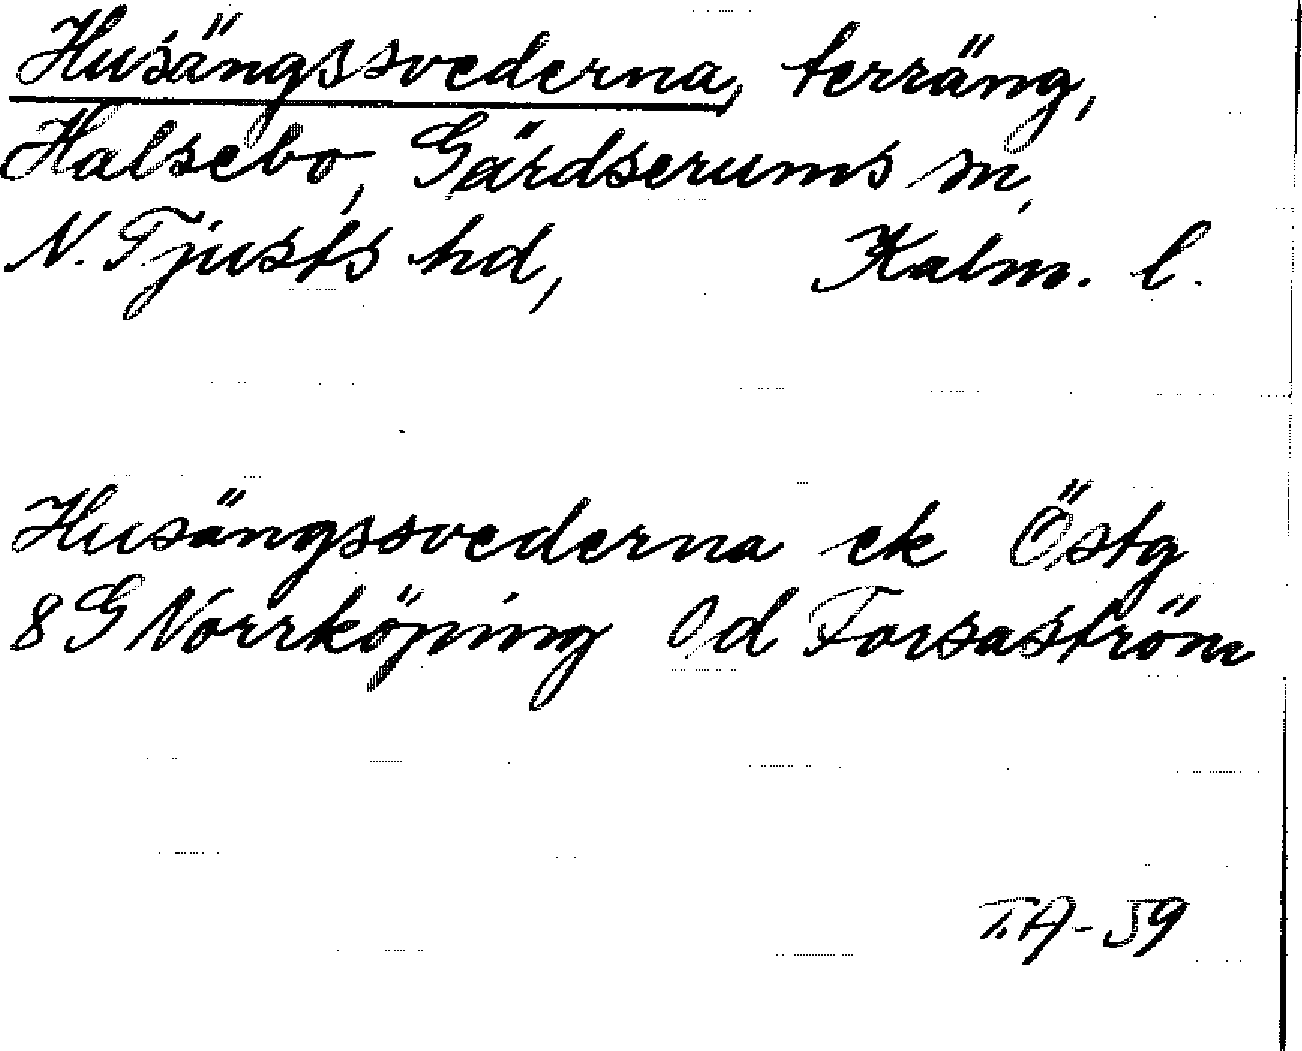 Husängssvederna, terräng,
Halsebo, Gärdserums sn,
N. Tjusts hd, Kalm. l.
Husängssvederna ek Östg
8G Norrköping 0d Forsaström
T.A-59